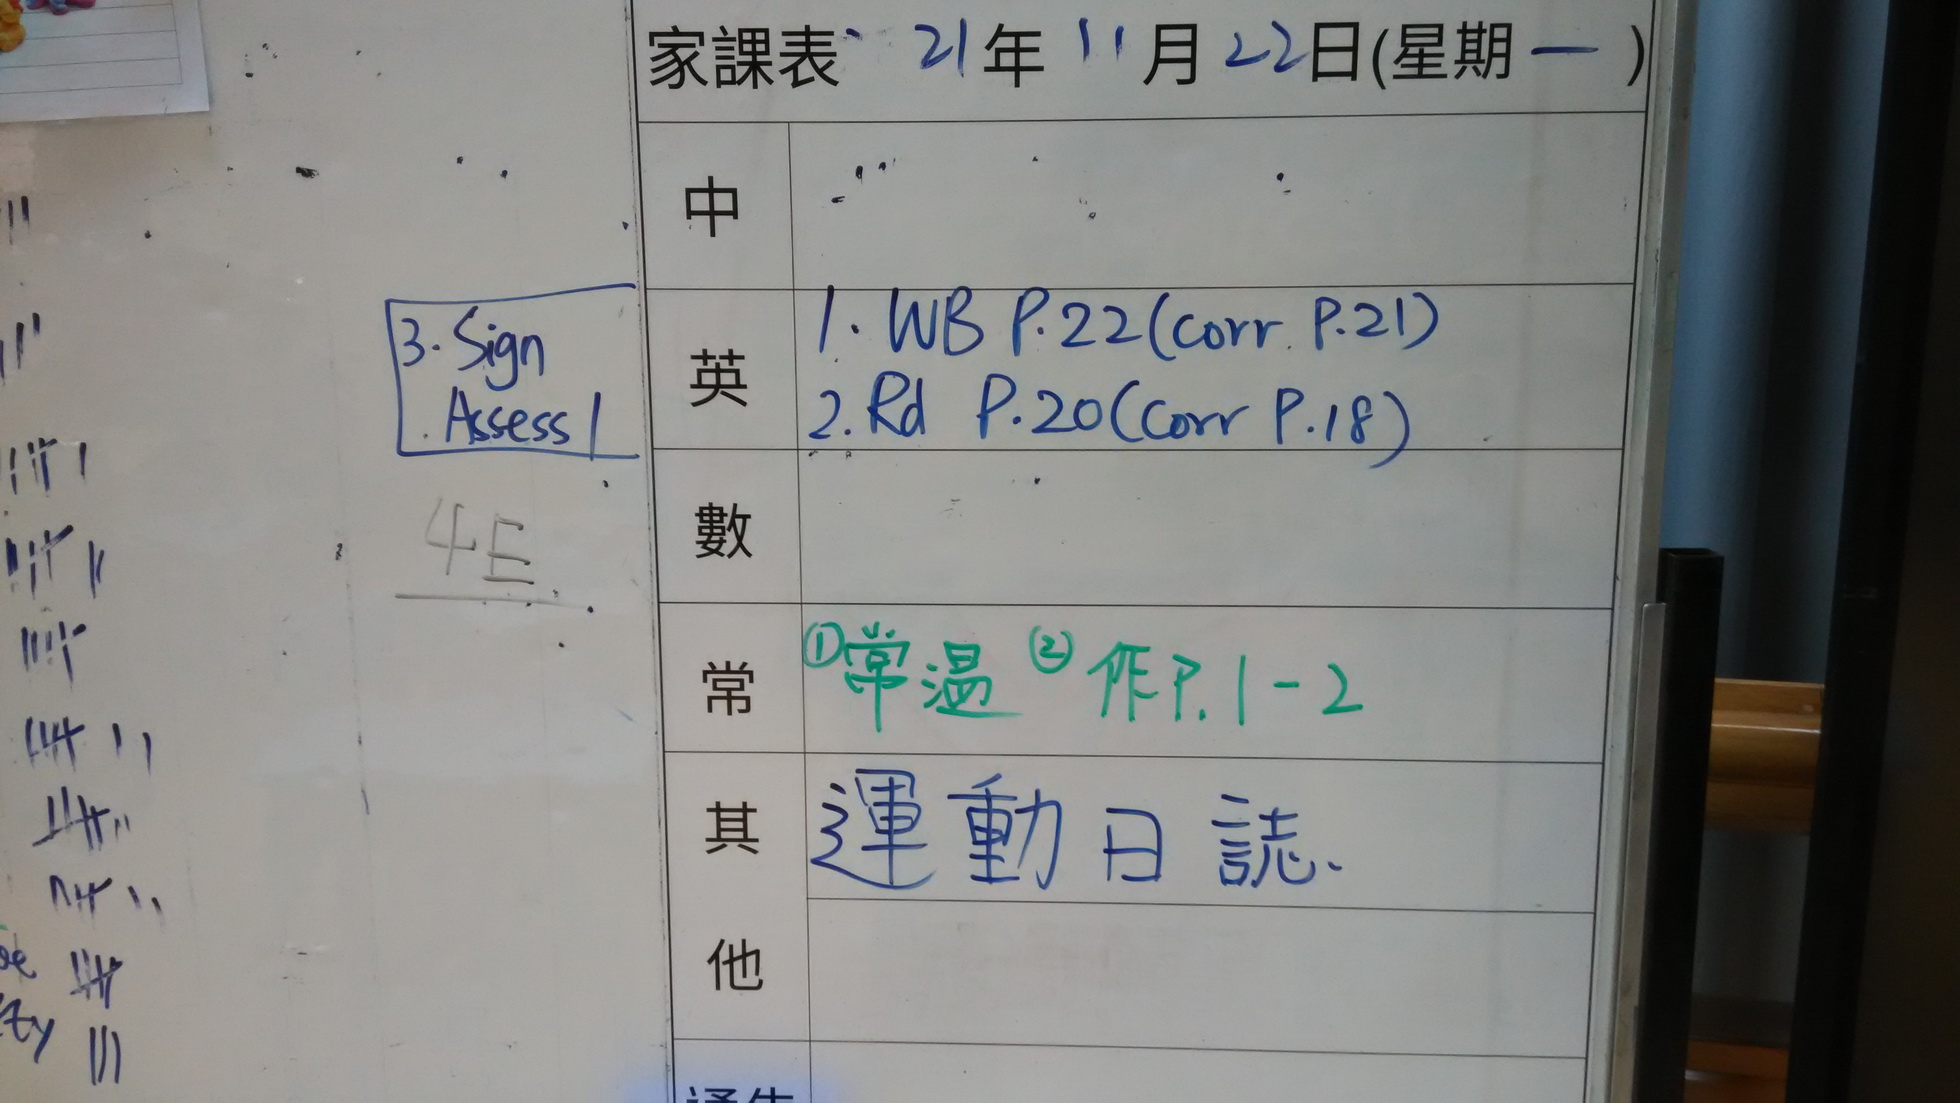 家課表 21年11月22日(星期一)
中
英
1. WB P.22(corr. P.21)
2. Rd P.20(corr P.18)
3. Sign
Assess 1
4E
數
常
①常温 ②作P.1-2
其他
運動日誌
通告